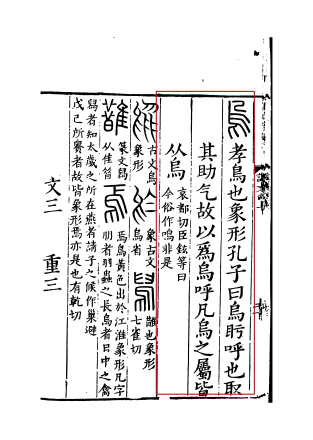 烏孝鳥也象形孔子曰烏盱呼也取
其助气故以爲烏呼凡烏之屬皆
从烏
哀都切臣鉉等曰
今俗作嗚非是
古文烏
象形
於象古文
烏省
舄䧿也象形
七雀切
篆文舄
从隹㫺
焉焉鳥黃色出於江淮象形凡字
朋者羽蟲之長烏者日中之禽
舄者知太歲之所在燕者請子之候作巢避
戊己所貴者故皆象形焉亦是也有乾切
文三 重三